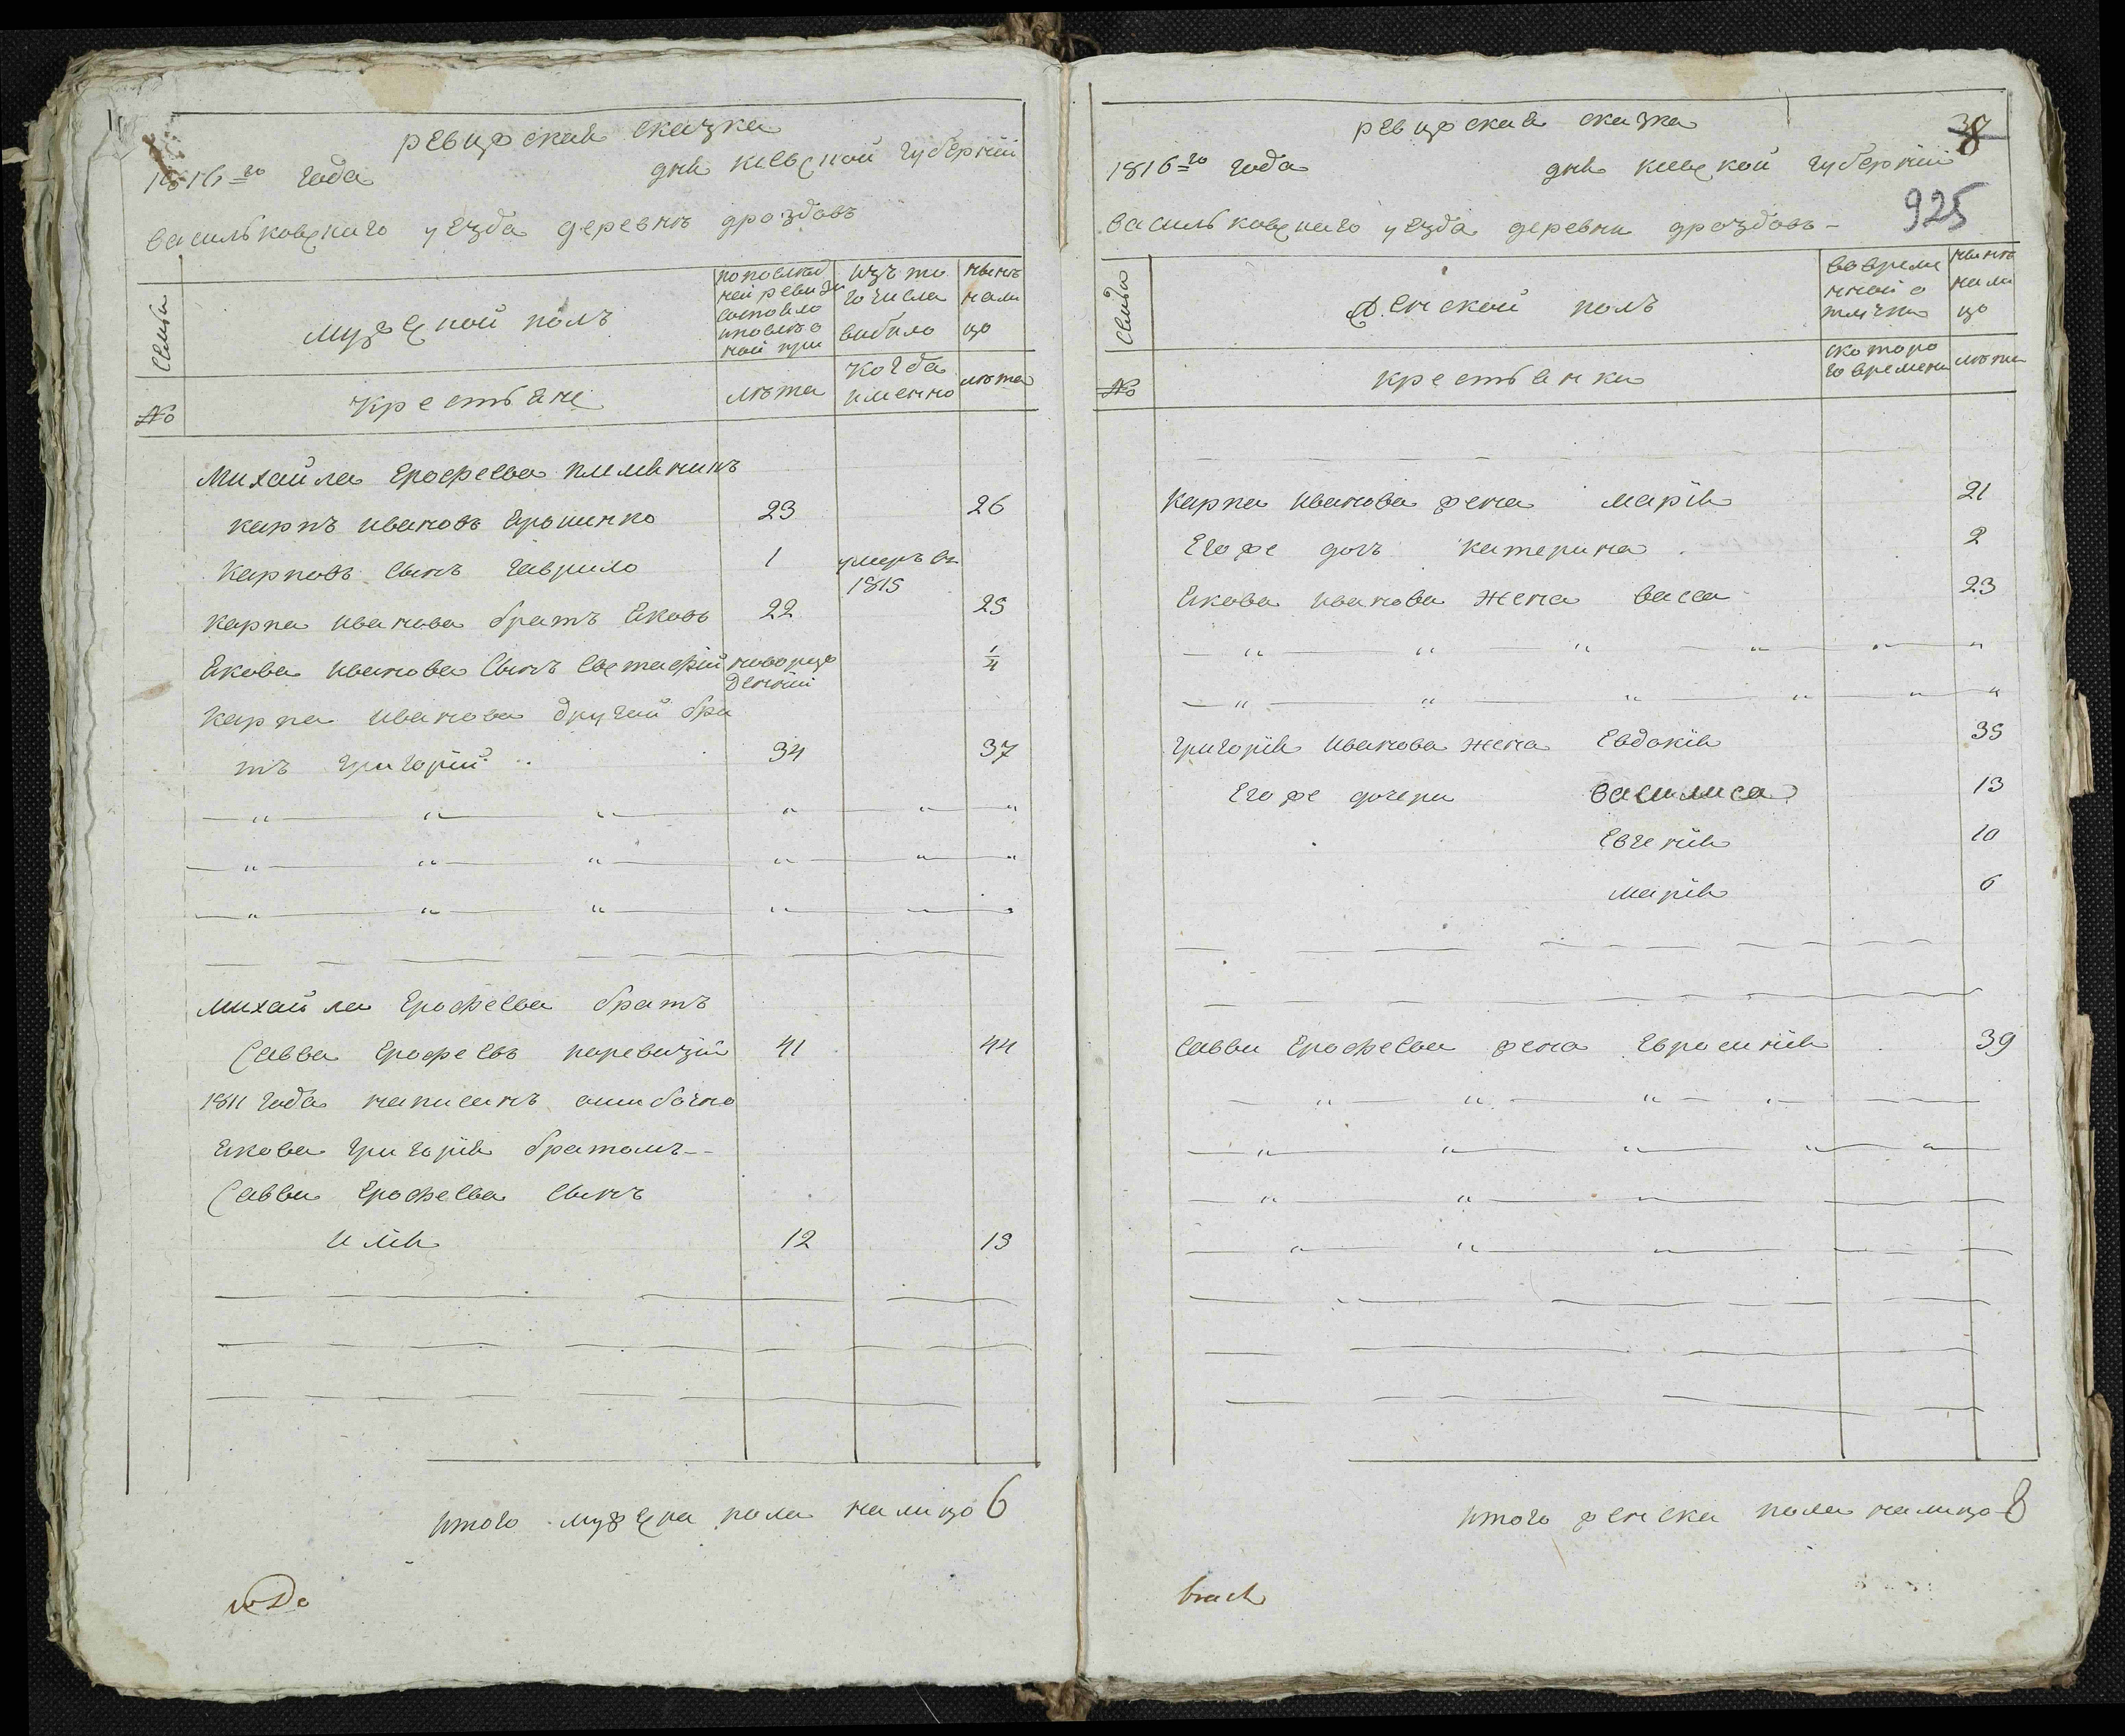 ревизская сказка
1816го года дня киевской губернии
васильковскаго уезда деревнъ дроздовъ
Семьи
мужеской полъ
по последней ревизии состояло и после оной при
изъ того числа выбыло
нынѣ налицо
№
крестьяне
лѣта
когда именно
лѣта
Михайла Ерофеева племянникъ
карпъ ивановъ 23 26
карповъ сынъ гаврило 1 умеръ въ 1815
карпа иванова братъ яковъ 22 25
якова иванова сынъ евстафій новорожденный 1/4
карпа иванова другой бра
тъ григорій 34 37
михайла ерофеева братъ
савва ерофеевъ поревизіи 41 44
1811 года написанъ ошибочно
якова григорія братомъ
саввы ерофеева сынъ
илія 12 15
итого мужска пола налицо 6
ревизская сказка
38
1816го года дня киевской губерніи
925
васильковскаго уезда деревни дроздовъ
Семьи
женской полъ
во временной отлучки
нынѣ налицо
№
крестьянки
с котораго времени
лѣта
карпа иванова жена марія 21
его же дочь катерина 2
якова иванова жена васса 23
григорія иванова жена евдокія 35
его же дочери василиса 13
евгенія 10
марія 6
саввы ерофеева жена евросинія 39
итого женска пола налицо 8